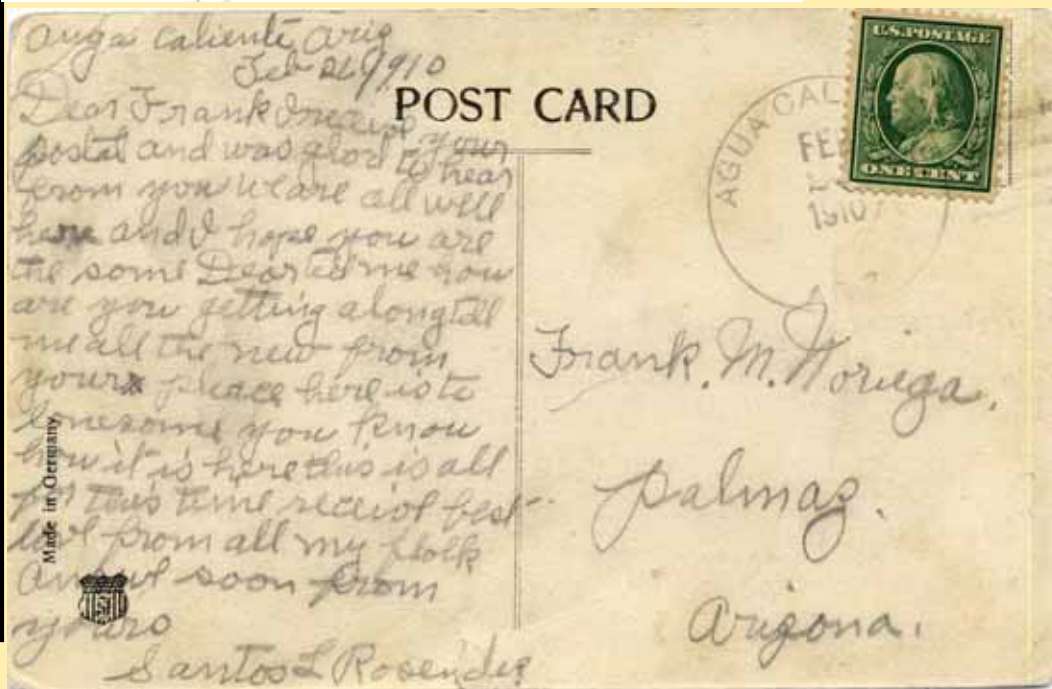 Auga Caliente, Ariz
Feb 21 1910
Dear Frank I receive your
postal and was glad to hear
from you We are all well
here and I hope you are
the same Dear tell me how
are you getting along tell
me all the new from
your place here is to
lonesome you know
how it is here this is all
for this time receive best
love from all my folk
soon from
yours
Santos L Rosendez
Made in Germany
POST CARD
AGUA CAL
FEB
1910
U.S. POSTAGE
ONE CENT
Frank. M. Noriega.
Palmas.
Arizona.